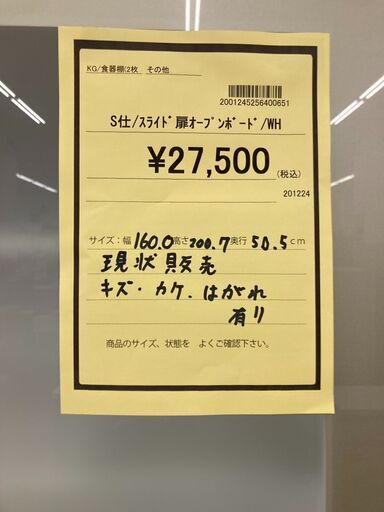 KG/食器棚(2枚 その他
2001245256400651
S仕/ｽﾗｲﾄﾞ扉ｵｰﾌﾟﾝﾎﾞｰﾄﾞ/WH
¥27,500(税込)
201224
サイズ：幅160.0高さ200.7奥行50.5cm
現状販売
キズ・カケ、はがれ
有り
商品のサイズ、状態を よくご確認下さい。